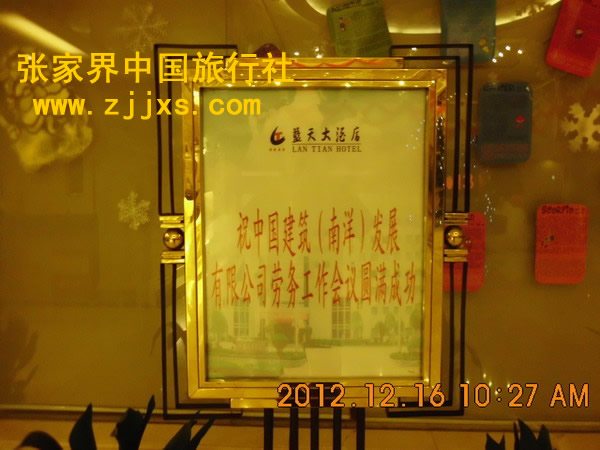 张家界中国旅行社
www.zjjxs.com
蓝天大酒店
LAN TIAN HOTEL
祝中国建筑（南洋）发展
有限公司劳务工作会议圆满成功
2012.12.16 10:27 AM